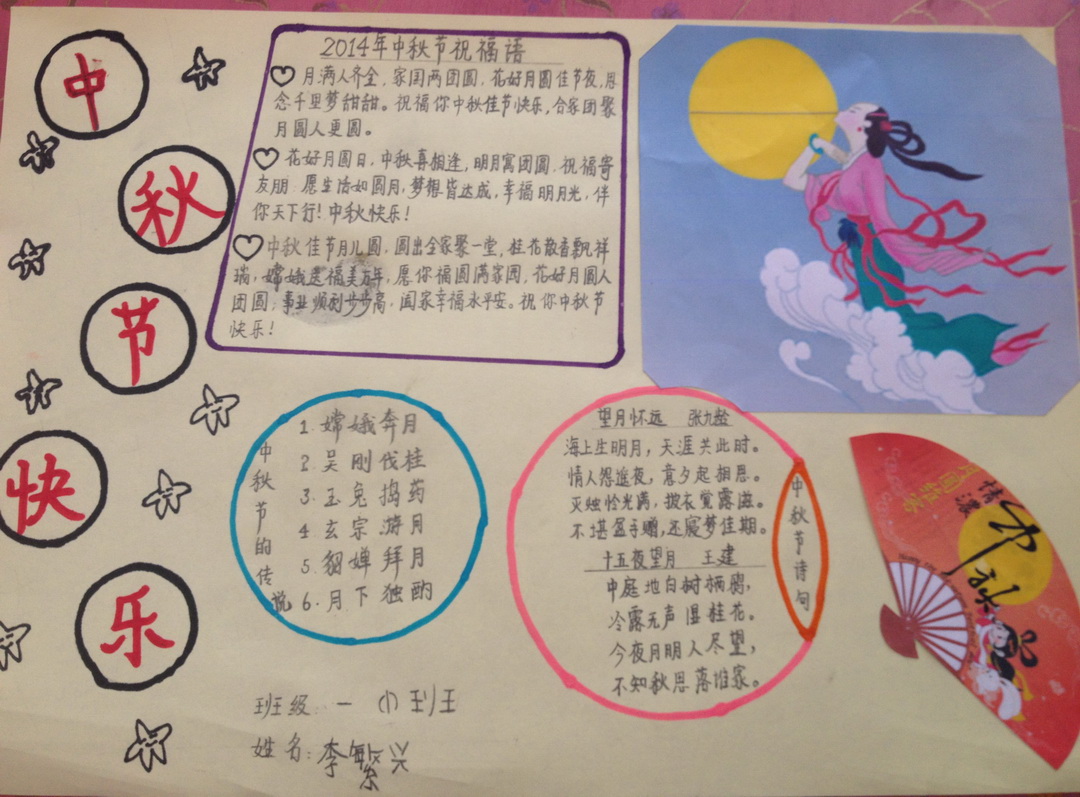 中
秋
节
快
乐
2014年中秋节祝福语
月满人齐全，家国两团圆，花好月圆佳节夜，思
念千里梦甜甜。祝福你中秋佳节快乐，合家团聚
月圆人更圆。
花好月圆日，中秋喜相逢，明月寓团圆，祝福寄
友朋，愿生活如圆月，梦想皆达成，幸福明月光，伴
你天下行！中秋快乐！
中秋佳节月儿圆，圆出全家聚一堂，桂花散香飘祥
瑞，嫦娥送福美万年，愿你福圆满家园，花好月圆人
团圆；事业顺利步步高，阖家幸福永平安。祝你中秋节
快乐！
中秋节的传说
1.嫦娥奔月
2.吴刚伐桂
3.玉兔捣药
4.玄宗游月
5.貂蝉拜月
6.月下独酌
望月怀远 张九龄
海上生明月，天涯共此时。
情人怨遥夜，竟夕起相思。
灭烛怜光满，披衣觉露滋。
不堪盈手赠，还寝梦佳期。
十五夜望月 王建
中庭地白树栖鸦，
冷露无声湿桂花。
今夜月明人尽望，
不知秋思落谁家。
中秋节诗句
情濃
中秋
班级：一（1）班
姓名：李繁兴